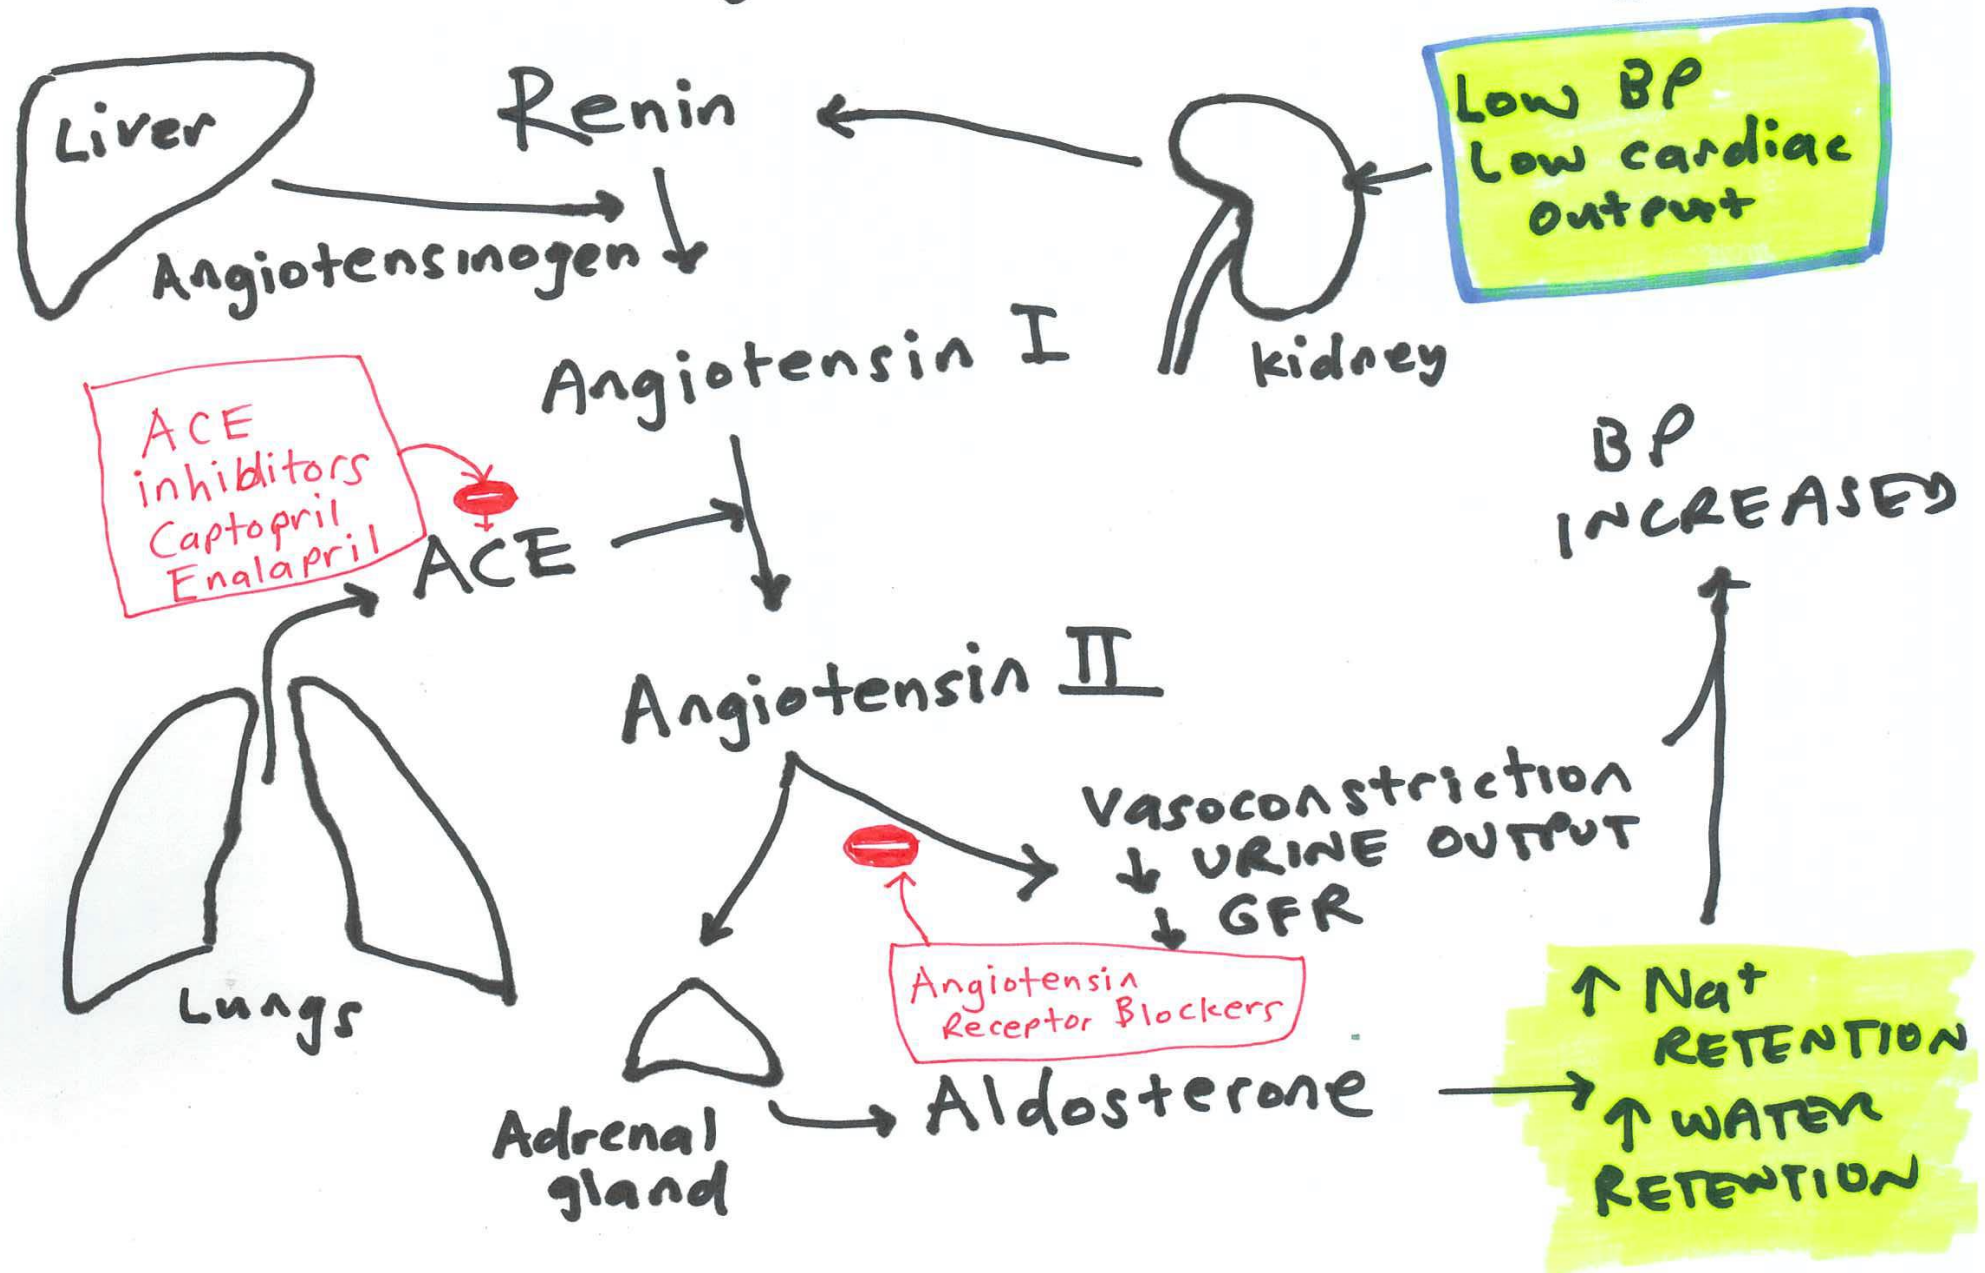 Liver
Renin
Low BP
Low cardiac
output
Angiotensinogen
kidney
Angiotensin I
ACE
inhibitors
Captopril
Enalapril
ACE
BP
INCREASED
Angiotensin II
Lungs
Vasoconstriction
↓ URINE OUTPUT
↓ GFR
Angiotensin
Receptor Blockers
Adrenal
gland
Aldosterone
↑ Na+
RETENTION
↑ WATER
RETENTION